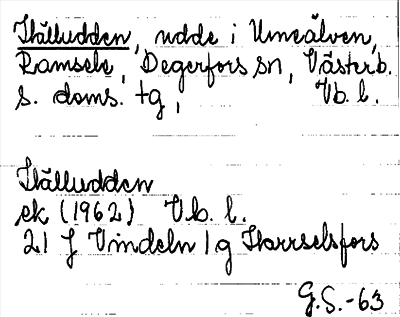 Ställudden, udde i Umeälven,
Ramsele, Degerfors sn, Västerb.
s. doms. tg, Vb. l.
Ställudden
ek (1962) Vb. l.
21 J Vindeln 1 g Harrselsfors
G.S.-63